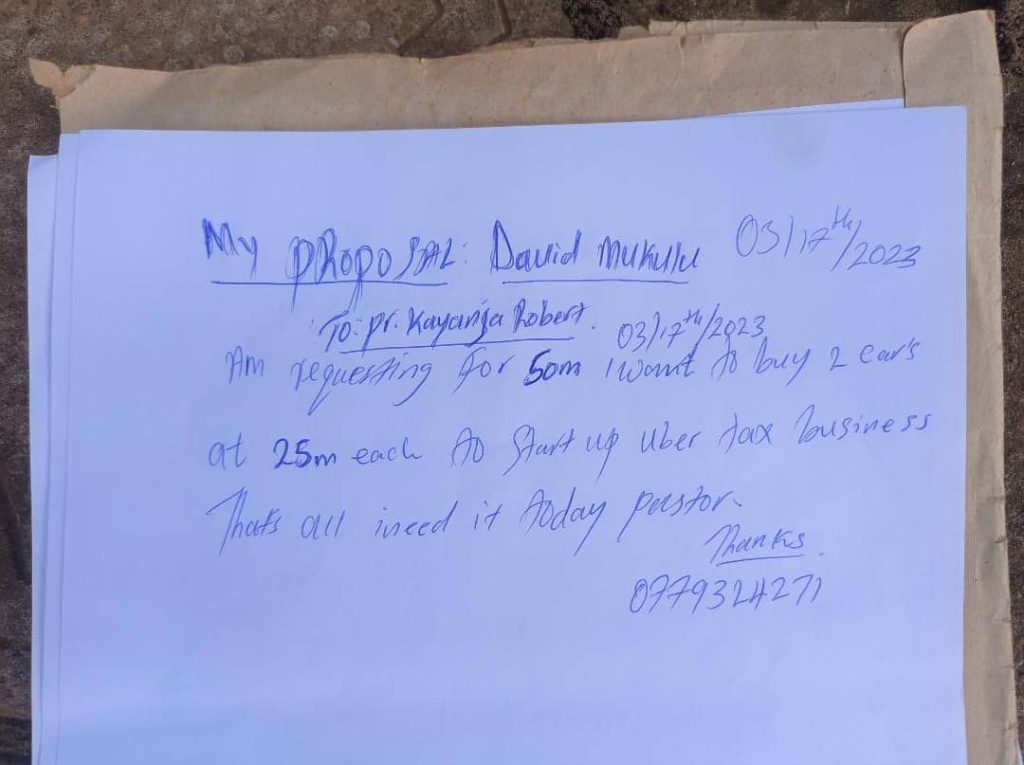 My PROPOSAL: David Mukulu 03/17th/2023
To: Pr. Kayanja Robert. 03/17th/2023
Am requesting for 50m i want to buy 2 cars
at 25m each to start up uber tax business
Thats all ineed it today pastor.
Thanks.
0779324271